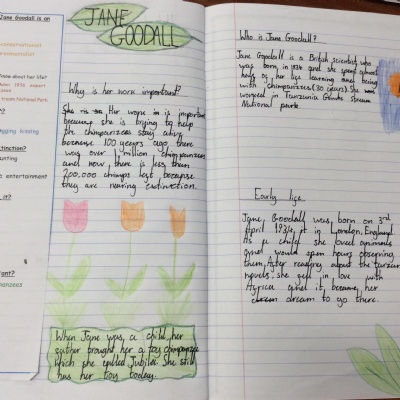 Jane Goodall is an
conservationist
know about her life?
hugging kissing
extinction?
hunting
entertainment
it?
JANE
GOODALL
Why is her work important?
She is Her work is important
because she is trying to help
the chimpanzees stay alive
because 100 years ago there
was over 1 million chimpanzees
and now there is less than
200,000 chimps left because
they are nearing extinction.
When Jane was a child her
father brought her a toy chimpanzee
which she called Jubilee. She still
has her toy today.
Who is Jane Goodall?
Jane Goodall is a British scientist who
was born in 1934 and she spent almost
half of her life learning and being
with chimpanzees (30 years). She
worked in Tanzania Gombe Stream
National park.
Early life.
Jane, Goodall was born on 3rd
April 1934 in London, England.
As a child she loved animals
and would spen hours observing
them. After reading about the tarzan
novels she fell in love with
Africa and it became her
dream to go there.